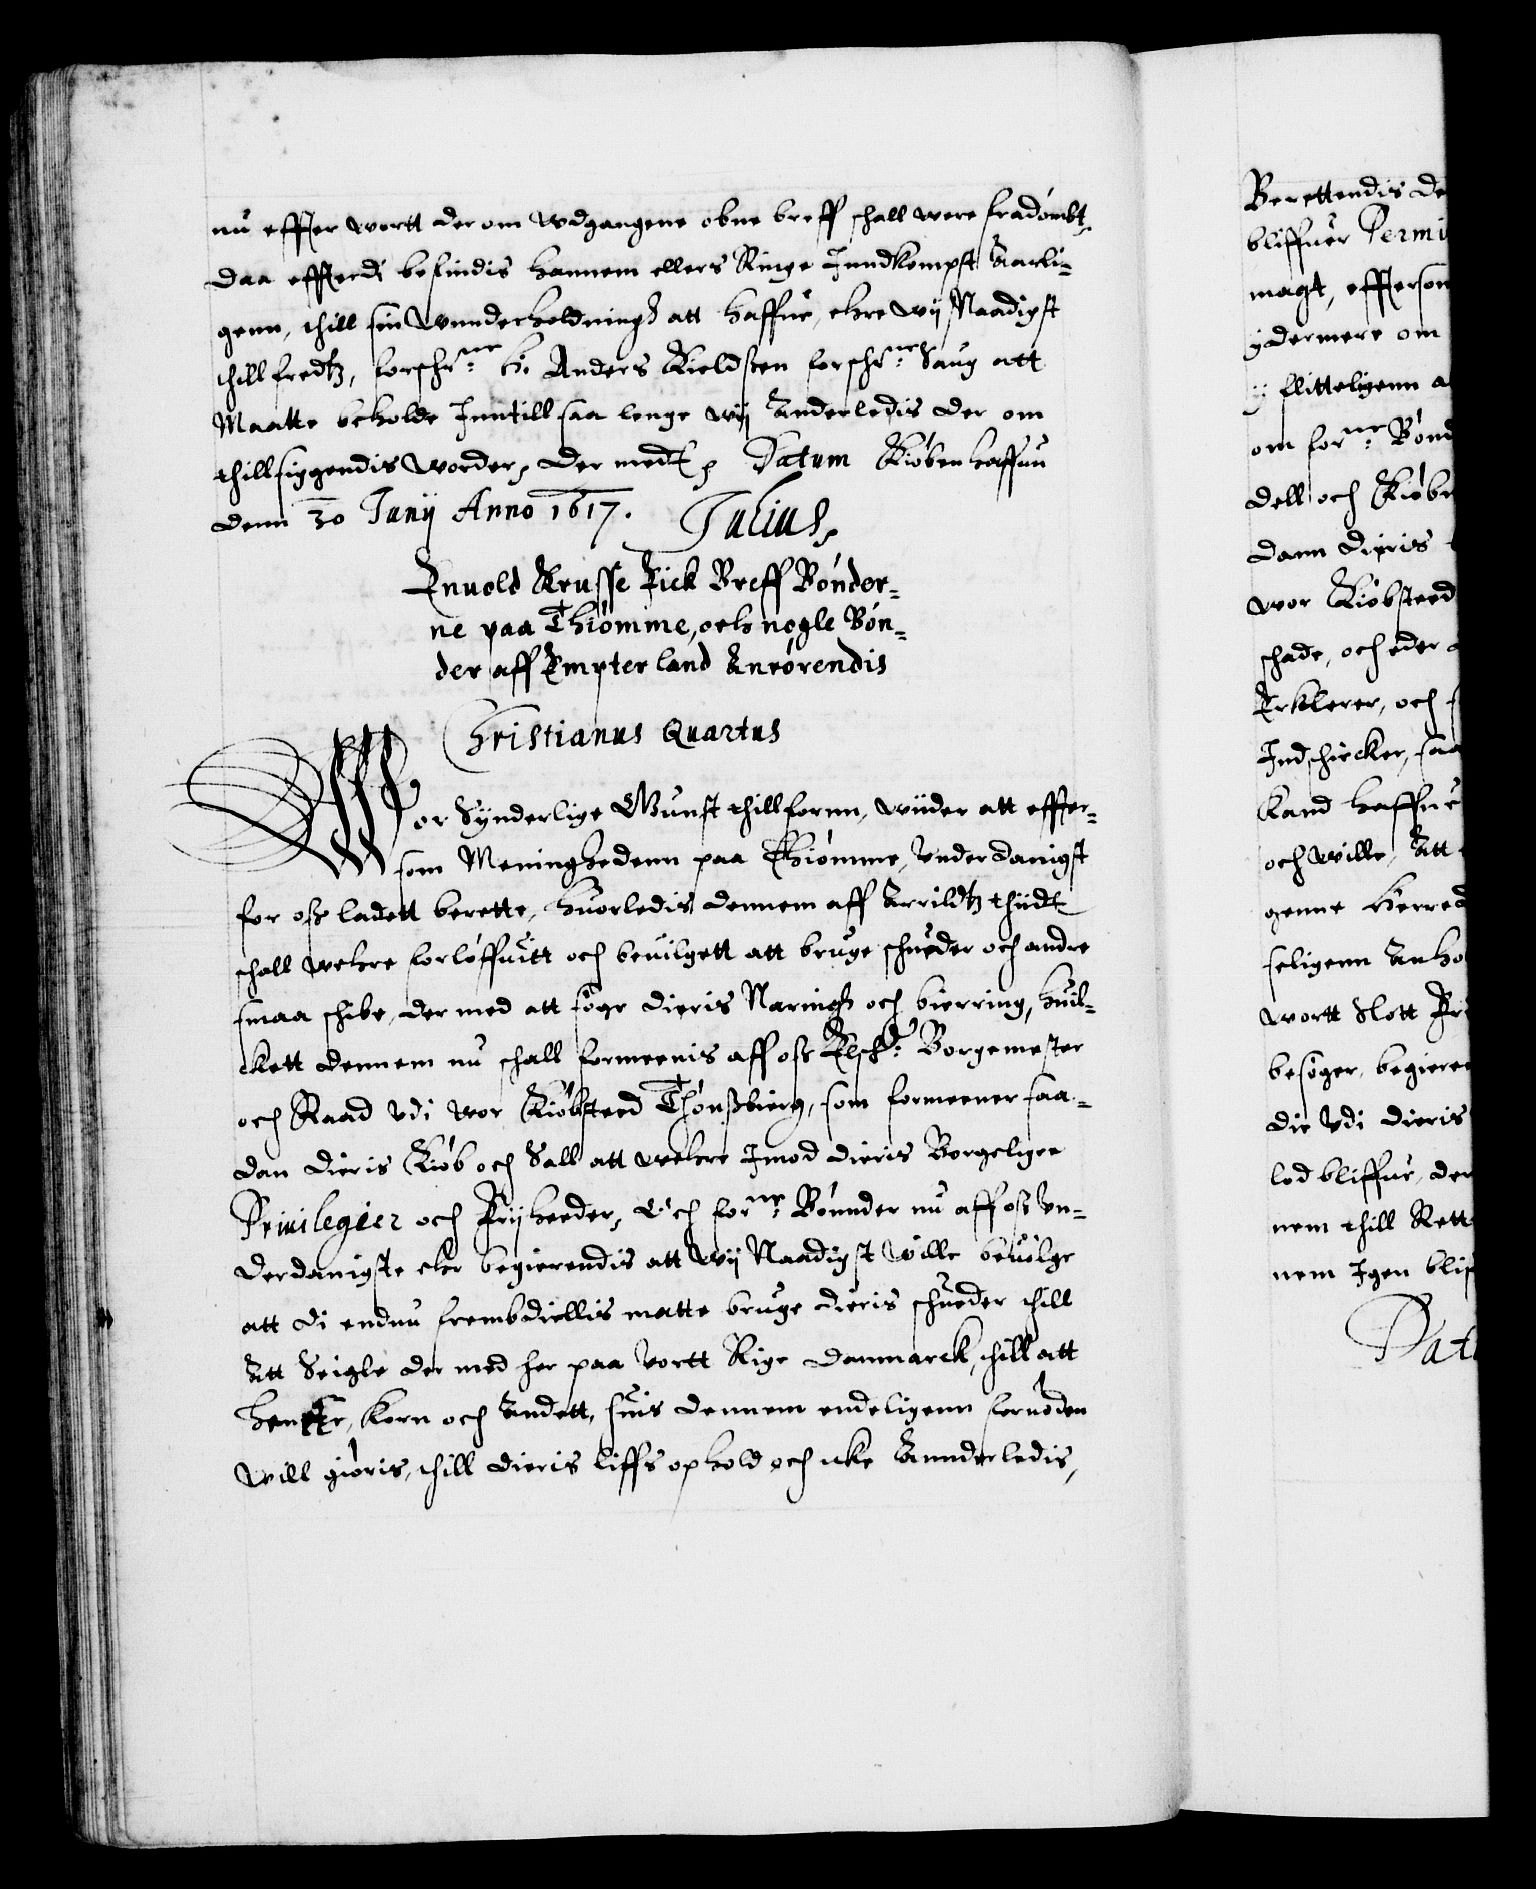 nu effter wortt der om wdgangene obne breff schall were fradömbt,
daa effterdi befindis hannem ellers Ringe Inndkompst Aarli-
genn, thill sin Wnnderholdningh att haffue, ehre wij Naadigst
thill fredtz, forschr:ne H. Anders Kieldssen forschr:ne Saug att
Maatte beholde Inntill saa lenge wij Anderledis der om
thillsiggendis worder, der medt Datum Kiöbenhaffnn
denn 30 Junij Anno 1617.
Julius,
Enuold Krusse Fick Breff Bönder-
ne paa Thiömme, och nogle Bön-
der aff Empterland Anrörendis
Christianus Quartus
Wor Synderlige Gunst thillfornn, wiider att effter-
som Meninghedenn paa Thiömme, Underdanigst
for oss ladett berette, huorledis dennem aff Arrildtz thiidt
schall wehre forlöffuitt och beuilgett att bruge schueder och andre
smaa schibe, der med att söge dieris Naringh och bierring, huil-
ckett dennem nu schall formeenis aff oss Elsch: Borgemester
och Raad Udi wor Kiöbsteed Thönssbierg, som formeener saa-
dan dieris Kiöb och Sall att wehre Imod dieris Borgelige
Priuilegier och Frijheeder, Och for:ne Bönnder nu aff oss Un-
derdanigste ehr begierendis att wij Naadigst wille beuilge
att di endnu frembdiellis matte bruge dieris schueder thill
Att Seigle der med her paa Vortt Rige Danmarck, thill att
hente, Korn och Andett, huis dennem endeligenn fornöden
will giöris, thill dieris liffs ophold och icke Annderledis,
Berettendis de
bliffuer Permi
magt, efftersom
ydermere om
ij flitteligenn a
om for:ne Bönd
dell och Kiöb
dann dieris
wor Kiöbsteed
schade, och eder
Erklerer, och
Indschicker, saa
Kand haffue
och wille, Att
genne Herred
seligenn Anho
wortt Slott
besöger, begieren
die Udi dieris
lod bliffue, der
nem thill Rett
nem Igen bli
Dat